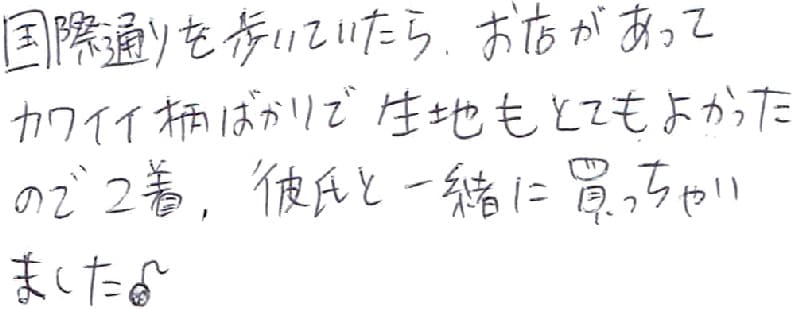 国際通りを歩いていたら、お店があって
カワイイ柄ばかりで生地もとてもよかった
ので2着、彼氏と一緒に買っちゃい
ました♪